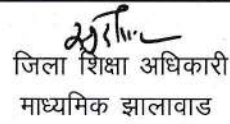 जिला शिक्षा अधिकारी
माध्यमिक झालावाड